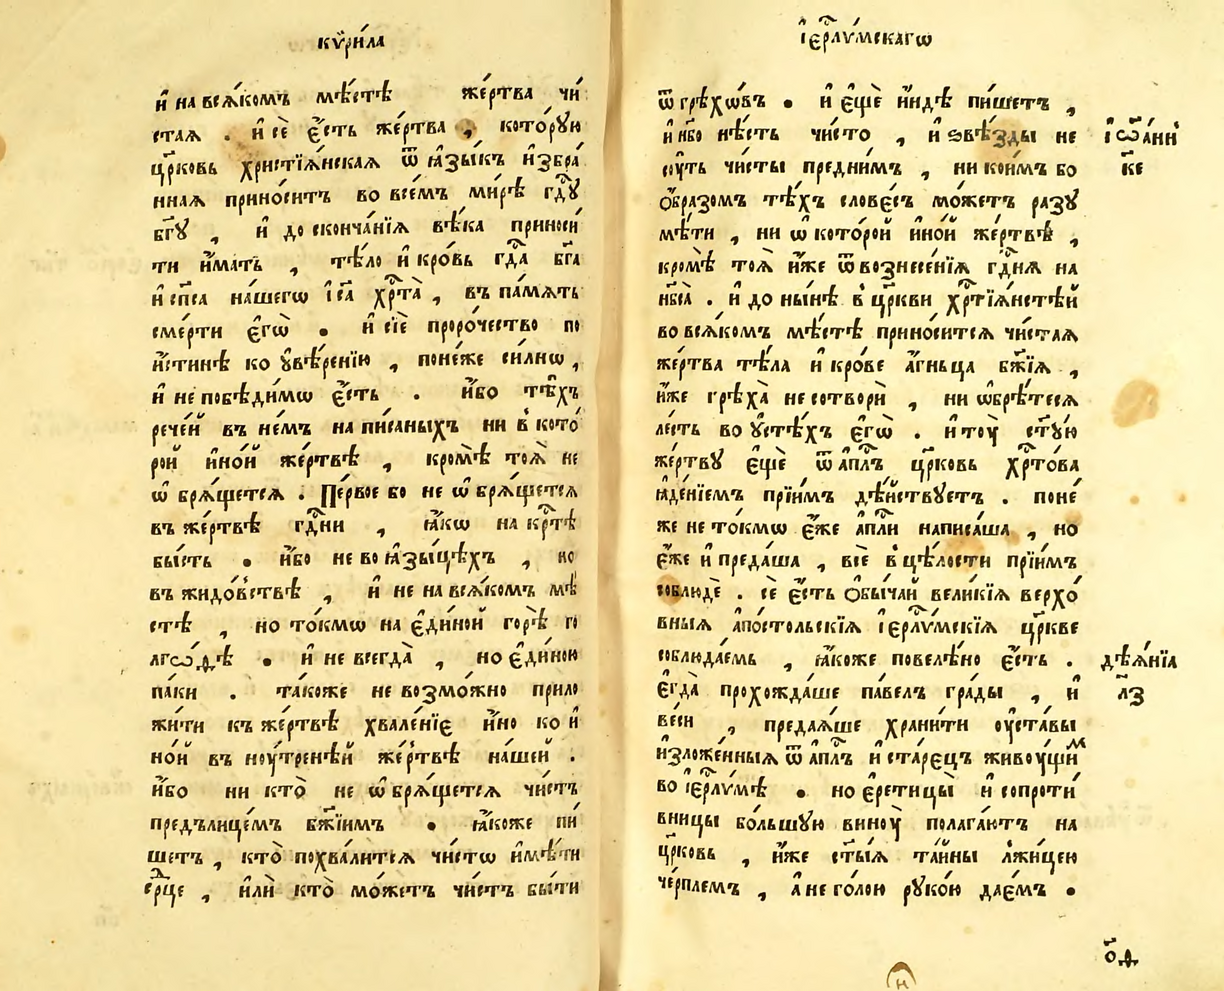 кѷри́ла
и҆ на всѧ́комъ мѣ́стѣ жє́ртва чи́
стаѧ . и҆ сѐ є҆́сть жє́ртва , кото́рꙋю
цр҃ковь хрⷭ҇тїѧ́нскаѧ ѿ ꙗ҆зы́къ и҆збра́
ннаѧ прино́ситъ во всє́мъ ми́рѣ гдⷭ҇ꙋ
бг҃ꙋ , и҆ до сконча́нїѧ вѣ́ка приноси́
ти и҆́мать , тѣ́ло и҆ кро́вь гдⷭ҇а бг҃а
и҆ сп҃са на́шєгѡ і҆с҃а хрⷭ҇та̀ , въ па́мѧть
смє́рти є҆гѡ̀ . и҆ сїѐ проро́чєство по
и҆́стинѣ ко ᲂу҆вѣ́рєнїю , понє́жє си́лнѡ ,
и҆ нє побѣди́мѡ є҆́сть . и҆́бо тѣ́хъ
рєчє́й въ нє́мъ написаныхъ ни в кото́
рой и҆но́й жє́ртвѣ , кромѣ̀ тоѧ̀ нє
ѡ҆брѧ́щєтсѧ . Пє́рвоє бо нє ѡ҆брѧ́щєтсѧ
въ жє́ртвѣ гдⷭ҇ни , ꙗ҆́кѡ на крⷭ҇тѣ
бы́сть . и҆́бо нє во ꙗ҆зы́цѣхъ , но
въ жидо́вствѣ , и҆ нє на всѧ́комъ мѣ́
стѣ , но то́кмѡ на є҆ди́ной горѣ̀ го
лгѡ́ѳѣ . и҆ нє всєгда̀ , но є҆ди́ною
па́ки . та́кожє нє возмо́жно прило
жи́ти къ жє́ртвѣ хвалє́нїє и҆́но ко и҆
но́й въ ноу́трєнѣй жє́ртвѣ на́шєй .
и҆́бо ни кто̀ нє ѡ҆брѧ́щєтсѧ чи́стъ
прєдълицє́мъ бж҃їимъ . ꙗ҆́кожє пи́
шєтъ , кто̀ похва́литсѧ чи́стѡ и҆мѣ́ти
срⷣцє , и҆лѝ кто̀ мо́жєтъ чи́стъ бы́ти
і҆єрⷭ҇лѵ́мскагѡ
ѿ грѣхѡ́въ . и҆ є҆щѐ и҆́ндѣ пи́шєтъ ,
и҆ нб҃о нѣ́сть чи́сто , и҆ ѕвѣ́зды нє
соу́ть чи́сты прєдни́мъ , ни кои́мъ бо
ѻ҆́бразомъ тѣ́хъ словє́съ мо́жєтъ разꙋ
мѣ́ти , ни ѡ҆ кото́рой и҆но́й жє́ртвѣ ,
кро́мѣ тоѧ̀ и҆́жє ѿ вознєсє́нїѧ гдⷭ҇нѧ на
нб҃са̀ . и҆ до ны́нѣ в цр҃кви хрⷭ҇тїѧ́нстѣй
во всѧ́комъ мѣ́стѣ прино́ситсѧ чи́стаѧ
жє́ртва тѣ́ла и҆ кро́вє а҆́гньца бж҃їѧ ,
и҆́жє грѣха̀ нє сотворѝ , ни ѡ҆брѣ́тєсѧ
лє́сть во ᲂу҆стѣ́хъ є҆гѡ̀ . и҆ тоу̀ ст҃ꙋю
жє́ртвꙋ є҆щѐ ѿ а҆пⷭ҇лъ цр҃ковь хрⷭ҇то́ва
ꙗ҆дє́нїємъ прїи́мъ дѣ́йствꙋєтъ . понє́
жє нє то́кмѡ є҆́жє а҆пⷭ҇ли написа́ша , но
є҆́жє и҆ прєда́ша , всѐ в цѣ́лости прїи́мъ
соблюдѐ . сѐ є҆́сть ѻ҆бы́чай вєли́кїѧ вєрхо́
вныѧ а҆по́стольскїѧ і҆єрⷭ҇лѵ́мскїѧ цр҃квє
соблюда́ємь , ꙗ҆́кожє повєлѣ́но є҆́сть .
є҆гда̀ прохожда́шє па́вєлъ гра́ды , и҆
вє́си , прєдаѧ́шє храни́ти оу҆ста́вы
и҆зложє́нныѧ ѿ а҆пⷭ҇лъ и҆ ста́рєцъ живоу́щиⷨ
во і҆єрⷭ҇лѵ́мѣ . но є҆рєтицы̀ и҆ сопроти́
вницы бо́льшꙋю виноу̀ полага́ютъ на
цр҃ковь , и҆́жє ст҃ы́ѧ та́йны лжи́цєю
чє́рплємъ , а҆ нє го́лою рꙋко́ю дає́мъ .
і҆ѡ҃а́нн
к҃є
дѣѧ́нїа
л҃з
о҃ѳ